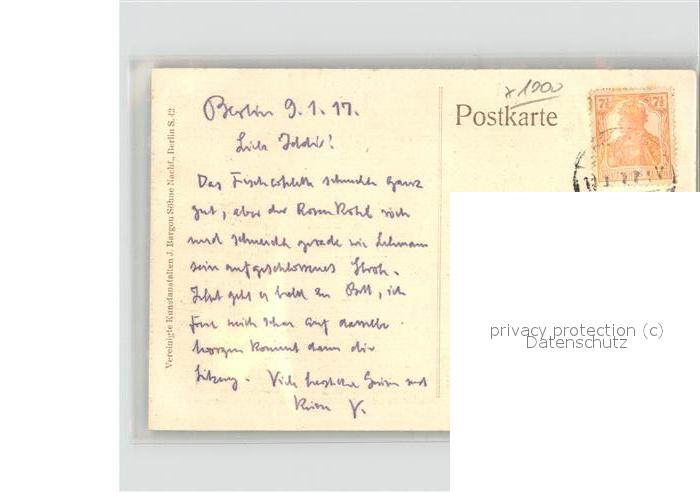 × 1000
Berlin 9.1.17.
Postkarte
7½ 7½
Das Fischcotelette schmeckte ganz
gut, aber der Rosenkohl roch
und schmeckte gerade wie Lehmann
sein aufgeschlossenes Stroh.
Jetzt geht es bald zu Bett, ich
freue mich schon auf dasselbe.
Morgen kommt dann die
Sitzung. Viele herzliche Grüsse und
Küsse V.
Vereinigte Kunstanstalten J. Bargou Söhne Nachf., Berlin S. 42
privacy protection (c)
Datenschutz